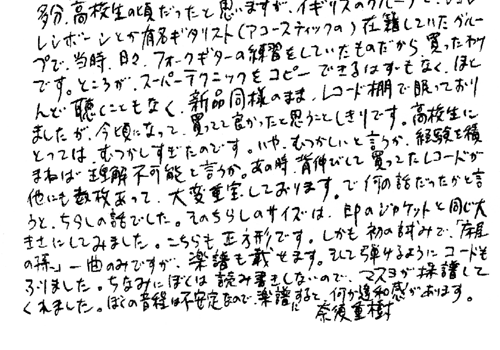 多分、高校生の頃だったと思いますが、イギリスのグループで、ジョン・
レンボーンとか有名ギタリスト(アコースティックの)在籍していたグルー
プで、当時、日々、フォークギターの練習をしていたものだから買ったわけ
です。ところが、スーパーテクニックをコピーできるはずもなく、ほと
んど聴くこともなく、新品同様のまま、レコード棚で眠っており
ましたが、今頃になって、買ってて良かったと思うことしきりです。高校生に
とっては、むつかしすぎたのです。いや、むつかしいと言うか、経験を積
まねば理解不可能と言うか。あの時、背伸びして買ってたレコードが
他にも数枚あって、大変重宝しております。で何の話だったかと言
うと、ちらしの話でした。そのちらしのサイズは、EPのジャケットと同じ大
きさにしてみました。こちらも正方形です。しかも初の試みで、「
の孫」一曲のみですが、楽譜も載せます。そして弾けるようにコードも
ふりました。ちなみにぼくは読み書きしないので、マスヨが採譜して
くれました。ぼくの音程は不安定なので、楽譜にすると、何か違和感があります。
奈須重樹